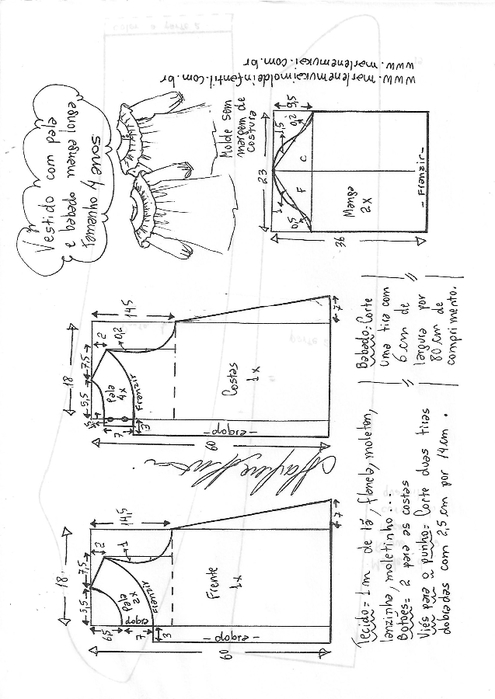 Vestido com pala
e babado manga longa
tamanho 4 anos
www.marlenemukaimoldeinfantil.com.br
www.marlenemukai.com.br
Molde sem
margem de
costura
23
9,5
1,5
0,2
1
0,5
F
C
Manga
2x
- Franzir -
36
18
5,5
7,5
2
14,5
0,2
Pala
4x
Franzir
7
3
Costas
1x
- dobra -
60
7
18
5,5
7,5
2
14,5
1
6,5
Pala
2x
dobra
Franzir
7
3
Frente
1x
- dobra -
60
7
Tecido = 1 m de lã, flanela, moletom,
lanzinha, moletinho ...
Botões = 2 para as costas
Viés para o punho = Corte duas tiras
dobradas com 2,5 cm por 14 cm.
Babado: Corte
uma tira com
6 cm de
largura por
80 cm de
comprimento.